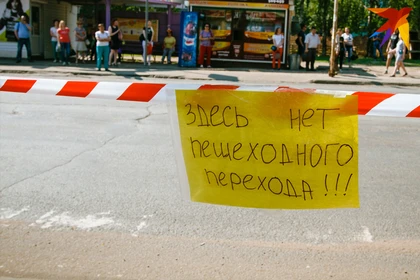 ЗДЕСЬ НЕТ
ПЕШЕХОДНОГО
ПЕРЕХОДА!!!